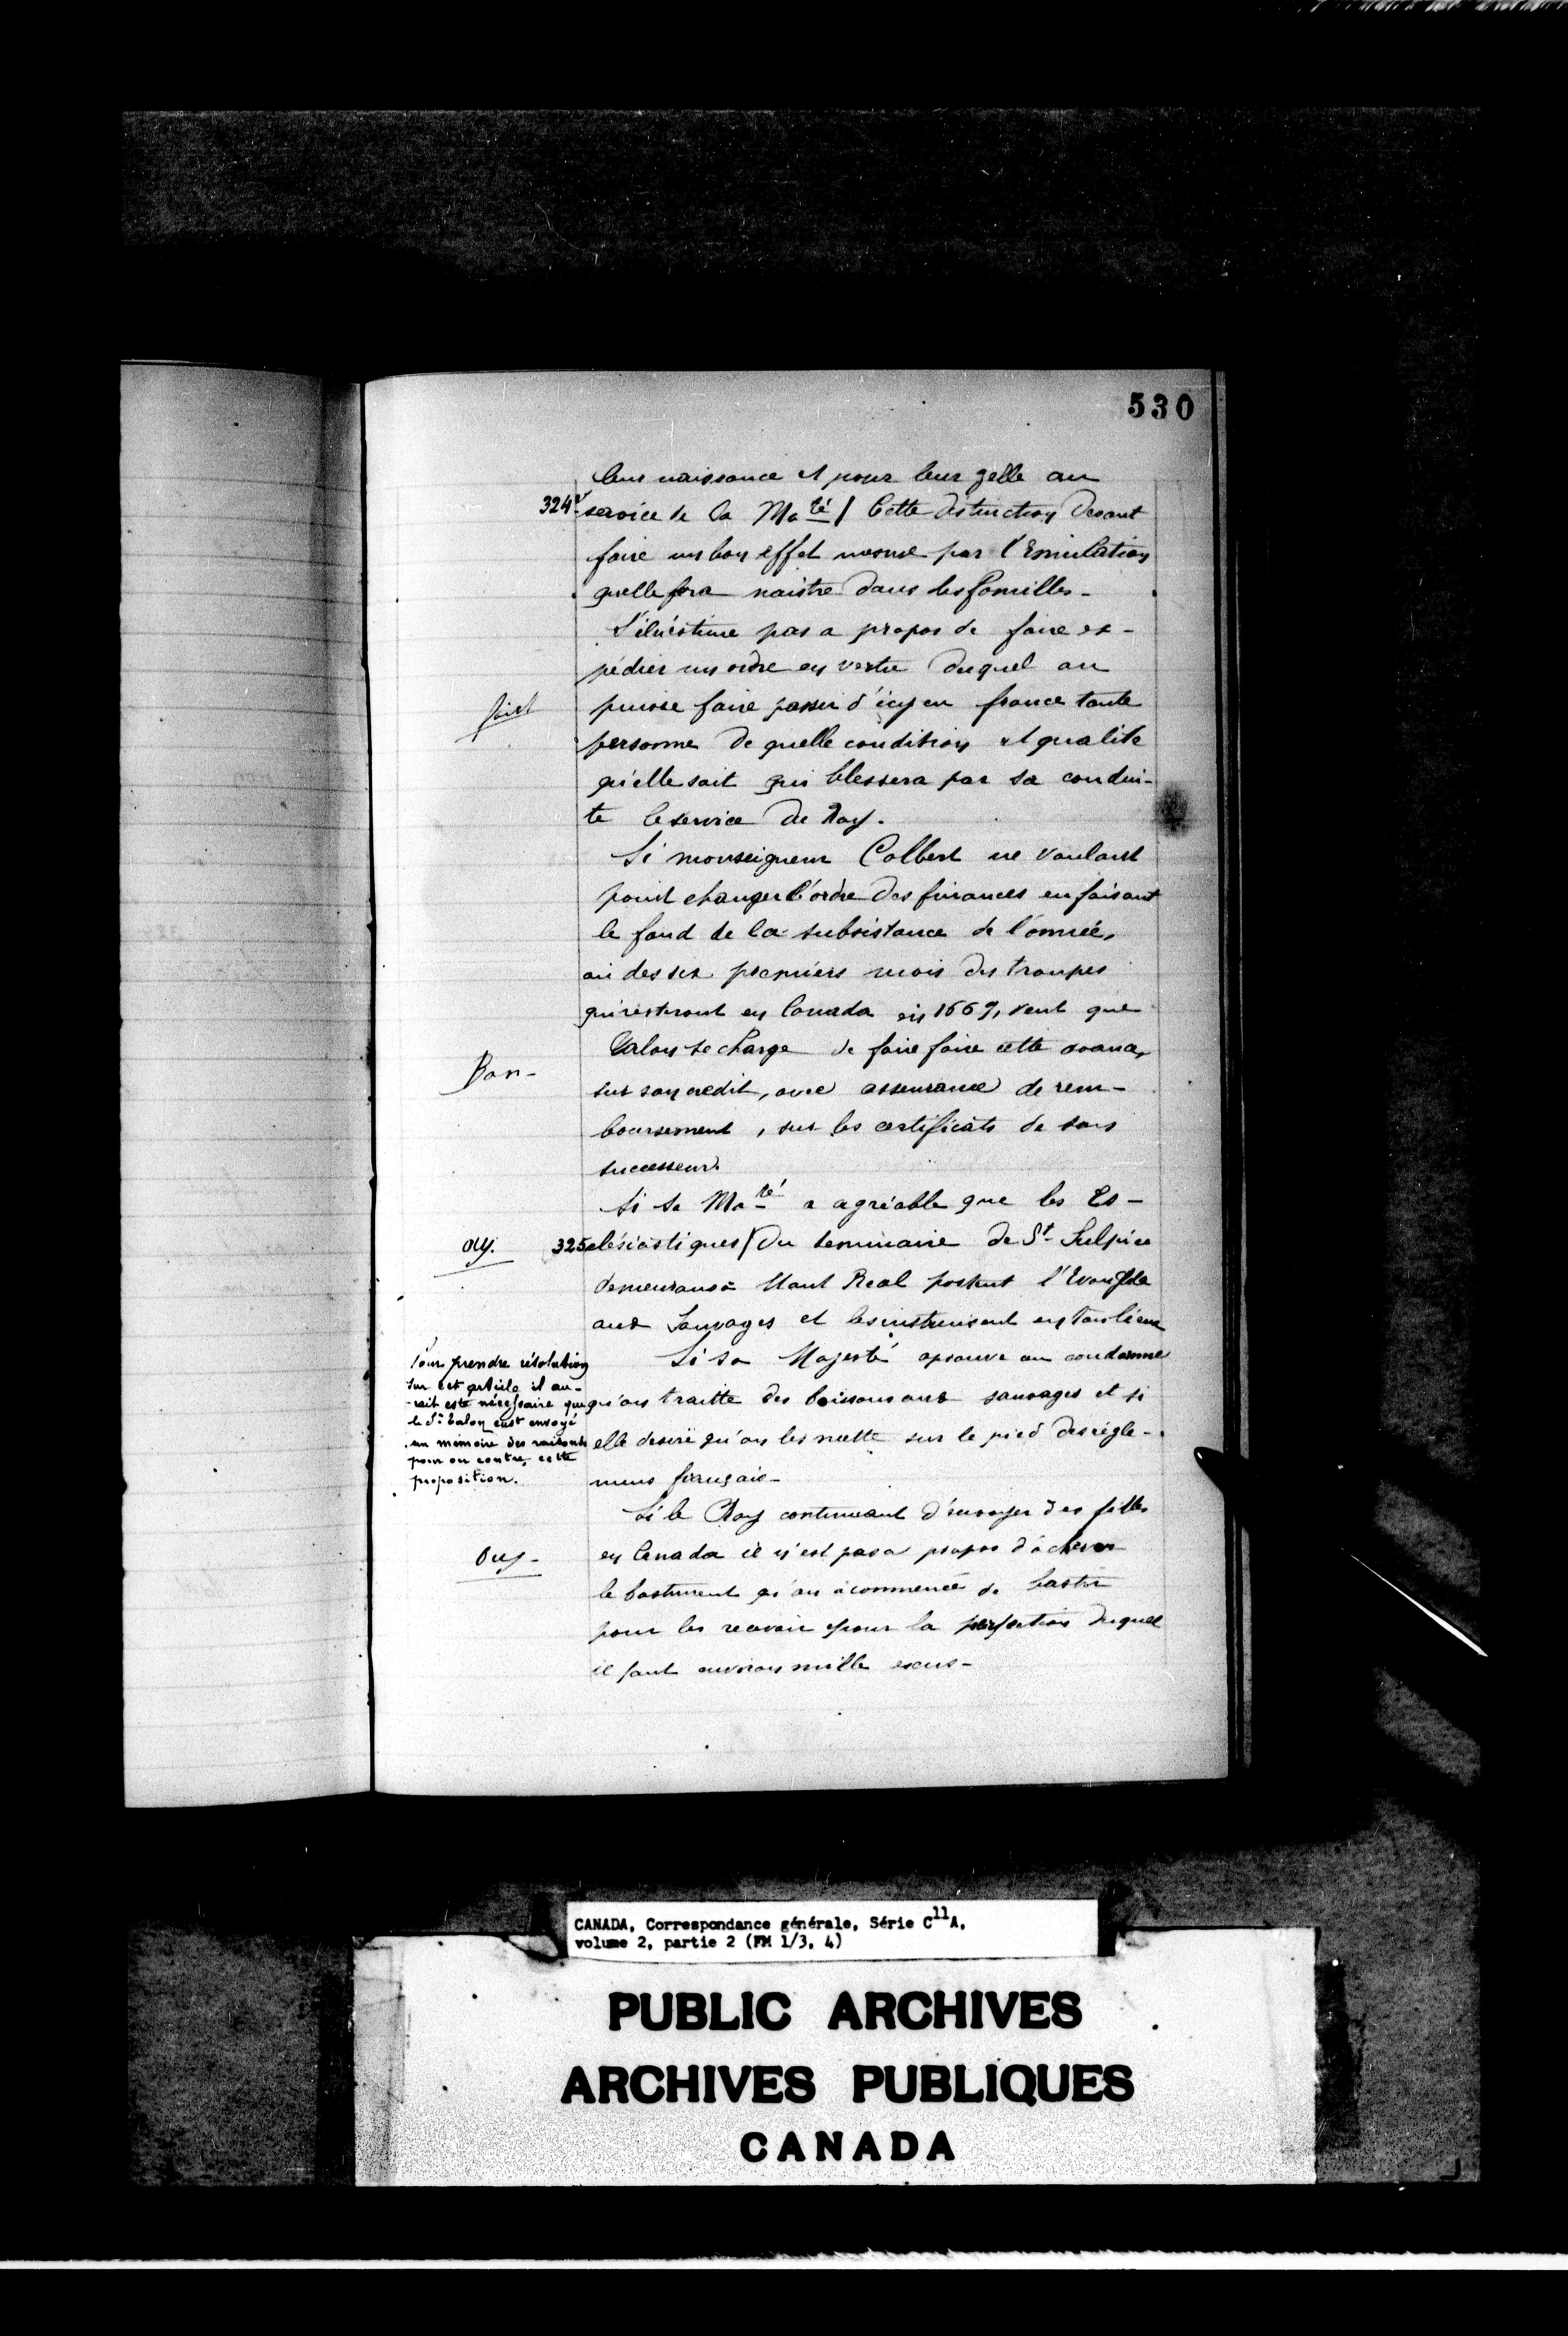 530
leur naissance et pour leur zelle au
324v service de Sa Ma té / Cette distinction devant
faire un bon effet mesme par l'Emulation
quelle fera naistre dans les familles -
S'il n'estime pas a propos de faire ex-
pédier un ordre en vertu duquel on
fait
puisse faire passer d'icy en france toute
personne de quelle condition et qualite
qu'elle soit qui blessera par sa condui-
te le service du Roy.
Si monseigneur Colbert ne voulant
point changer l'ordre des finances en faisant
le fond de la subsistance de l'année,
ou des six premiers mois des troupes
qui resteront en Canada en 1667, veut que
Bon -
Talon se charge de faire faire cette avance,
sur son credit, avec asseurance de rem-
boursement, sur les certificats de son
successeur.
Si Sa Ma té a agréable que les Ec-
ouy.
325 clésiastiques / du seminaire de St Sulpice
demeurans à Mont Real portent l'Evangile
aux Sauvages et les instruisent en tous lieux
Si Sa Majesté aprouve ou condamne
qu'on traitte des boissons aux sauvages et si
elle desire qu'on les mette sur le pied des régle-
mens français -
Pour prendre résolution
sur cet article il au-
-rait esté nécessaire que
le Sr. Talon eust envoyé
un mémoire des raisons
pour ou contre, cette
proposition.
Si le Roy continuant d'envoyer des filles
Ouy -
en Canada il n'est pas a propos d'achever
le bastiment qu'on a commencé de bastir
pour les recevoir pour la perfection duquel
il faut environ mille escus -
CANADA, Correspondance générale, Série C11A,
volume 2, partie 2 (FM 1/3, 4)
PUBLIC ARCHIVES
ARCHIVES PUBLIQUES
CANADA